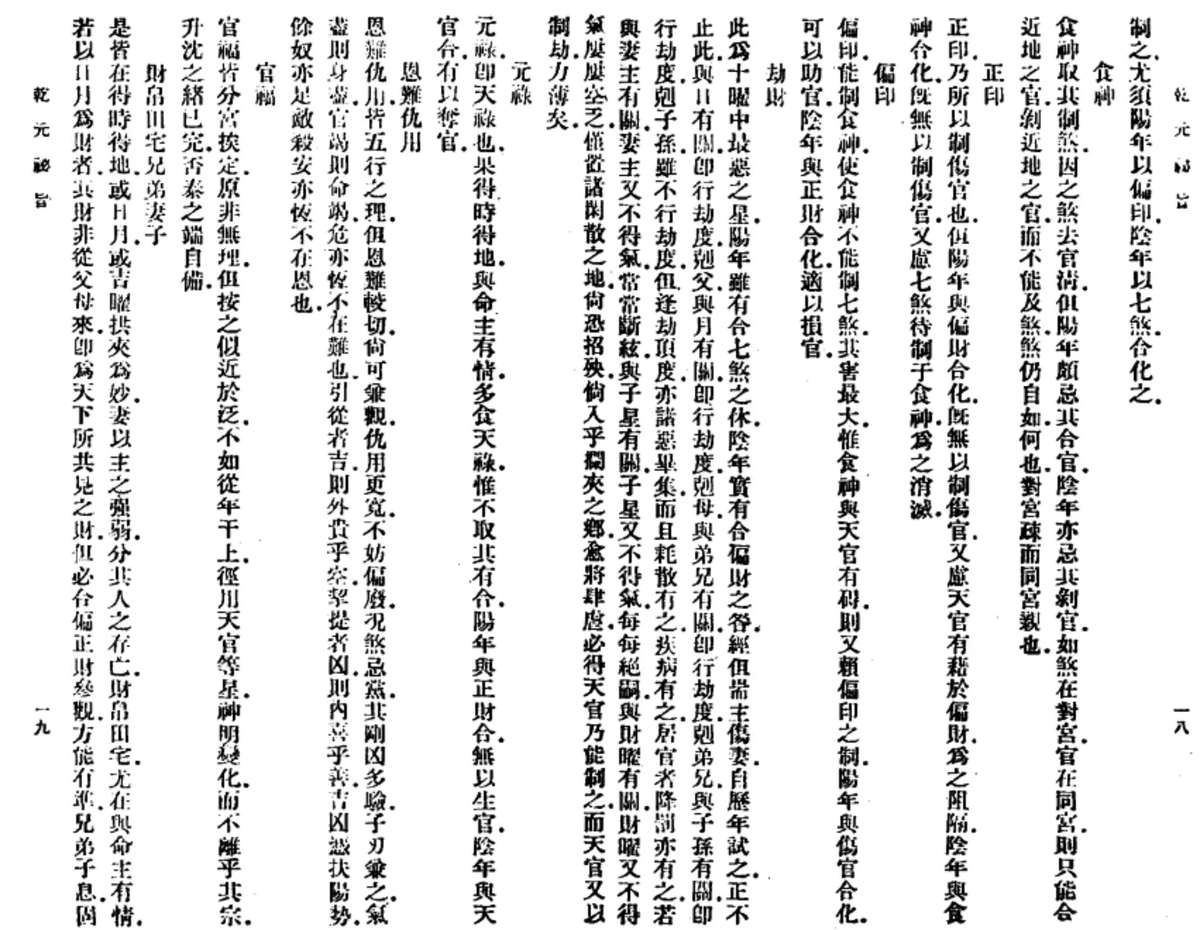 乾元秘旨
一八
制之.尤須陽年以偏印.陰年以七煞.合化之.
食神
食神取其制煞.因之煞去官淸.但陽年頗忌其合官.陰年亦忌其剝官.如煞在對宮.官在同宮.則只能合
近地之官.剝近地之官.而不能及煞.煞仍自如.何也.對宮疎而同宮親也.
正印
正印.乃所以制傷官也.但陽年與偏財合化.旣無以制傷官.又慮天官有藉於偏財.爲之阻隔.陰年與食
神合化.旣無以制傷官.又慮七煞待制于食神.爲之消滅.
偏印
偏印.能制食神.使食神不能制七煞.其害最大.惟食神與天官有碍.則又賴偏印之制.陽年與傷官合化.
可以助官.陰年與正財合化.適以損官.
劫財
此爲十曜中最惡之星.陽年雖有合七煞之休.陰年實有合偏財之咎.經但耑主傷妻.自歷年試之.正不
止此.與日有關.卽行劫度.剋父.與月有關.卽行劫度.剋母.與弟兄有關.卽行劫度.剋弟兄.與子孫有關.卽
行劫度.剋子孫.雖不行劫度.但逢劫頂度.亦諸惡畢集.而且耗散有之.疾病有之.居官者降罰亦有之.若
與妻主有關.妻主又不得氣.常常斷絃.與子星有關.子星又不得氣.每每絕嗣.與財曜有關.財曜又不得
氣.屢屢空乏.僅置諸閑散之地.尙恐招殃.倘入乎攔夾之鄉.愈將肆虐.必得天官乃能制之.而天官又以
制劫力薄矣.
元祿
元祿.卽天祿也.果得時得地.與命主有情.多食天祿.惟不取其有合.陽年與正財合.無以生官.陰年與天
官合.有以奪官.
恩難仇用
恩難仇用.皆五行之理.但恩難較切.尙可兼觀.仇用更寬.不妨偏廢.況煞忌黨其剛.凶多驗.子刃兼之.氣
盡則身盡.官竭則命竭.危亦恆不在難也.引從者吉.則外貴乎空.挈提者凶.則內喜乎善.吉凶憑扶陽勢.
餘奴亦足敵殺.安亦恆不在恩也.
官福
官福皆分宮挨定.原非無理.但按之似近於泛.不如從年干上.徑用天官等星.神明變化.而不離乎其宗.
升沈之緒已完.否泰之端自備.
財帛田宅兄弟妻子
是皆在得時得地.或日月.或吉曜拱夾爲妙.妻以主之强弱.分其人之存亡.財帛田宅.尤在與命主有情.
若以日月爲財者.其財非從父母來.卽爲天下所共見之財.但必合偏正財參觀.方能有準.兄弟子息.固
乾元秘旨
一九